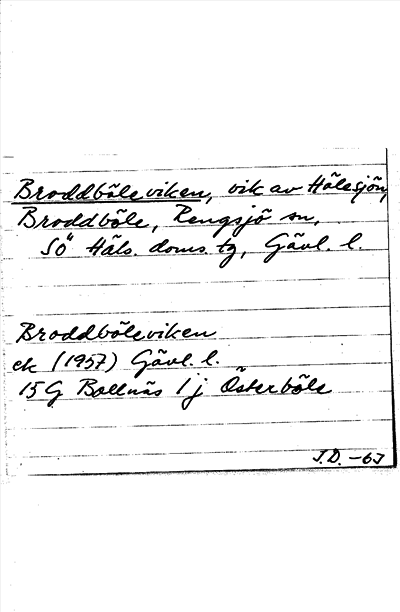 Broddböleviken, vik av Hålsjön,
Broddböle, Rengsjö sn,
SÖ Häls. doms. tg, Gävl. l.
Broddböleviken
ek (1957) Gävl. l.
15 G Bollnäs 1 j Österböle
J.D. -63